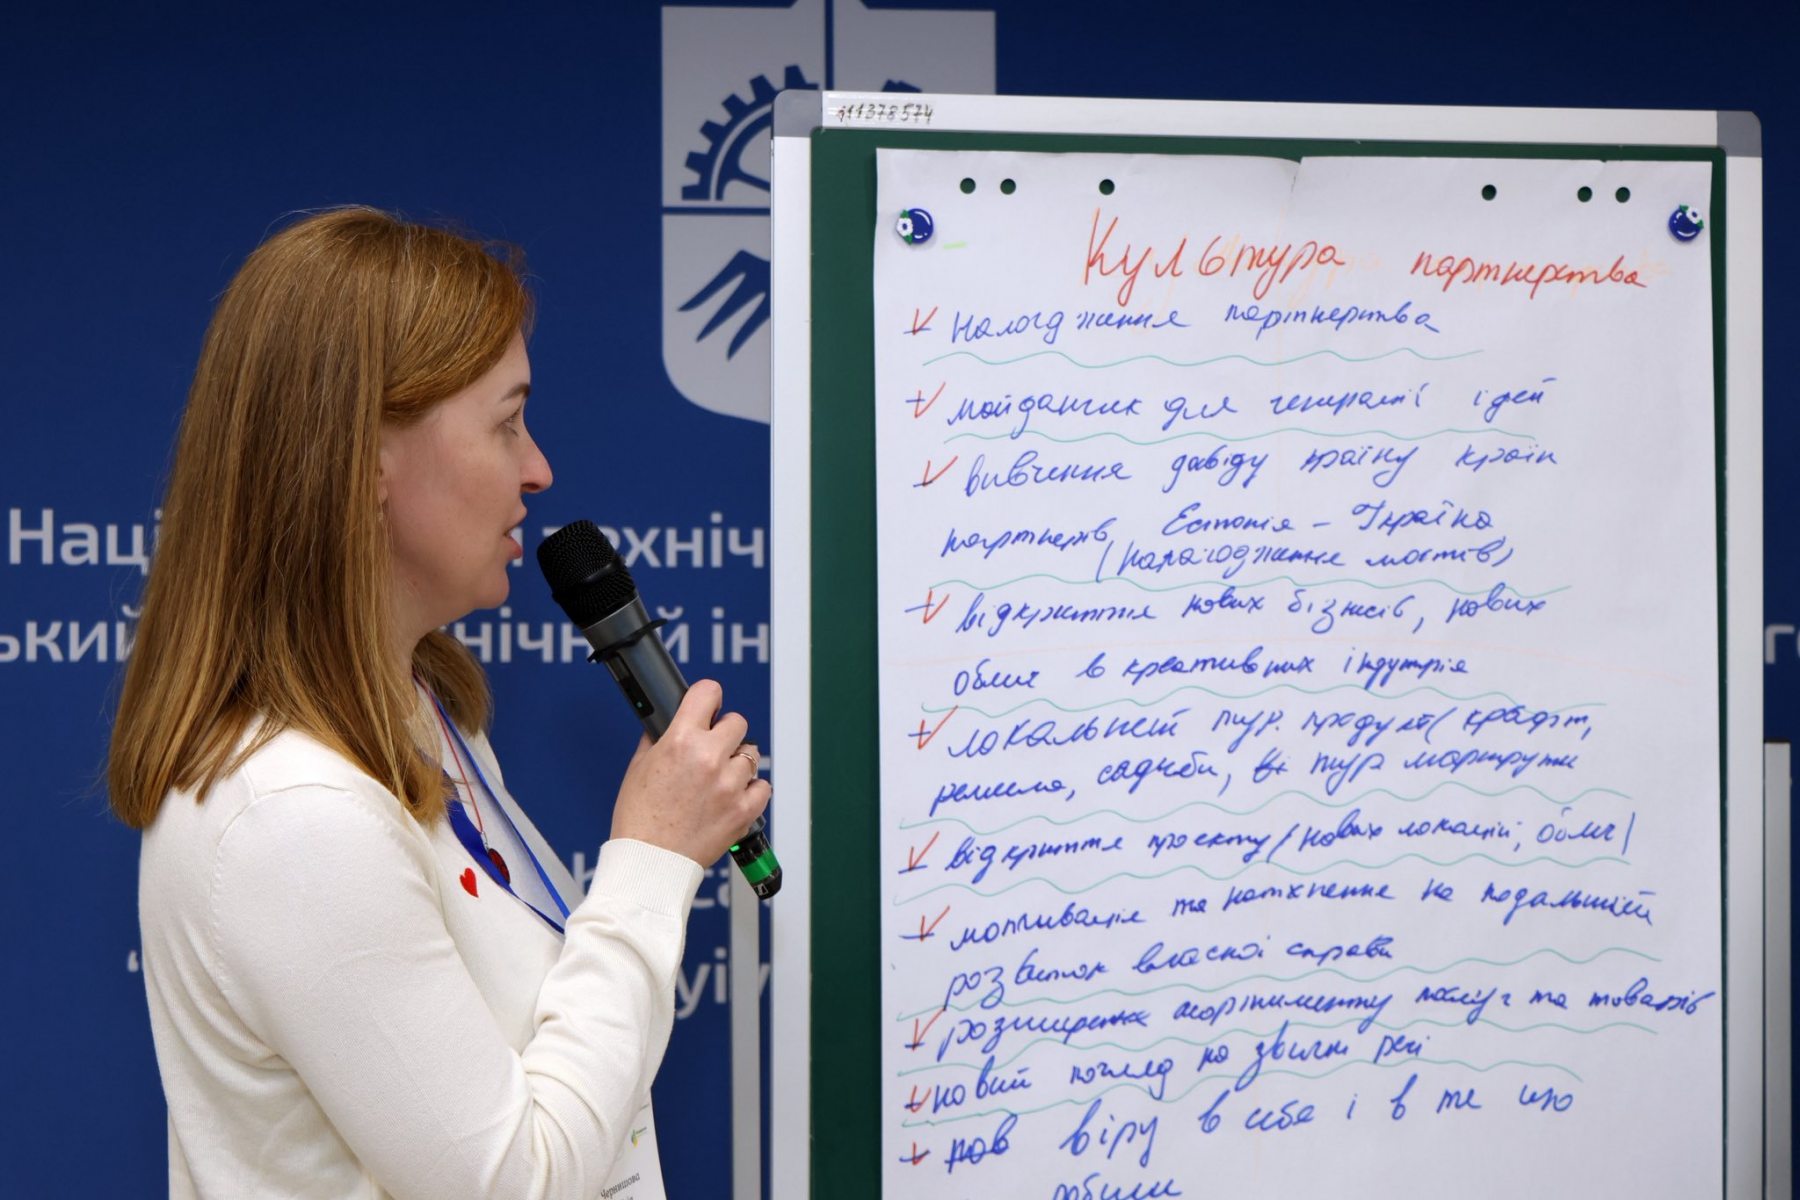 111378574
Культура партнерства
налагодження партнерства
майданчик для генерації ідей
вивчення досвіду країн
партнерів, Естонія - Україна
(налагодження мостів)
відкриття нових бізнесів, нових
облич в креативних індустрія
локальний тур. продукт (крафт,
ремесла, садиби, тур маршрути
відкриття проєкту (нових локацій, облич)
мотивація та натхнення на подальший
розвиток власної справи
розширення асортименту послуг та товарів
новий погляд на звичні речі
віру в себе і в те що
робили
Наці технічн
ький нічний ін
Чернишова